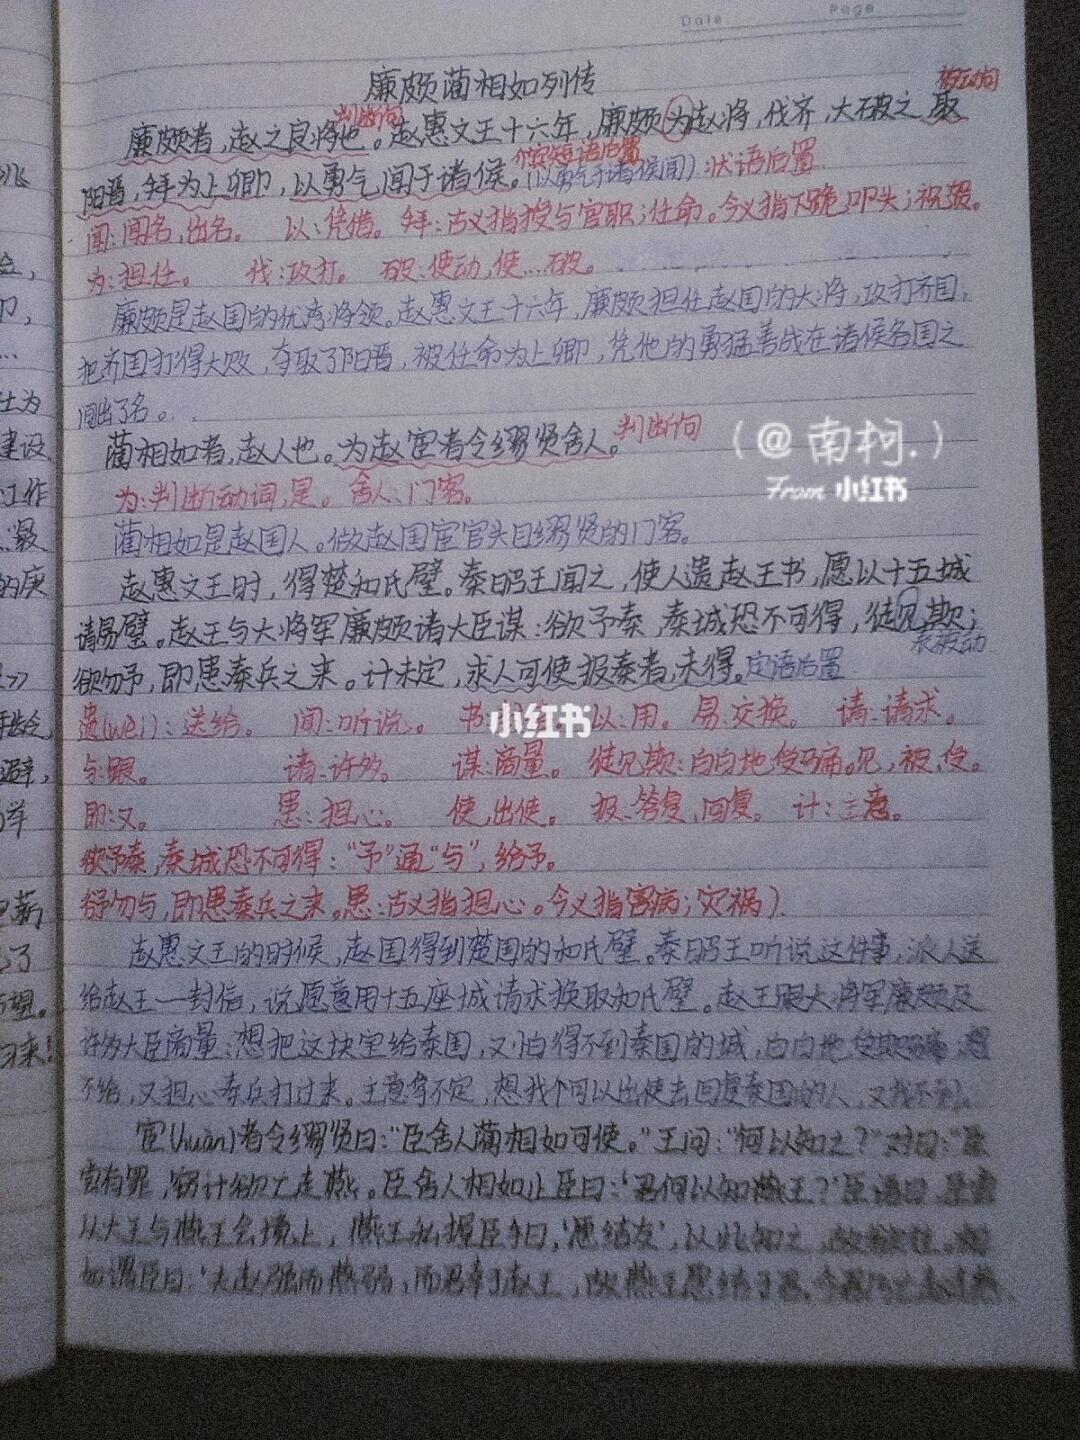 Date Page
廉颇蔺相如列传
判断句 被动句
廉颇者,赵之良将也。赵惠文王十六年,廉颇为赵将,伐齐,大破之,取
介宾短语后置
阳晋,拜为上卿,以勇气闻于诸侯。(以勇气于诸侯闻)状语后置
闻:闻名,出名。 以:凭借。 拜:古义指授与官职;任命。今义指下跪叩头;祝贺。
为:担任。 伐:攻打。 破:使动,使…破。
廉颇是赵国的优秀将领。赵惠文王十六年,廉颇担任赵国的大将,攻打齐国,
把齐国打得大败,夺取了阳晋,被任命为上卿,凭他的勇猛善战在诸侯各国之
间出了名。
蔺相如者,赵人也。为赵宦者令缪贤舍人。判断句
(@南柯.)
From 小红书
为:判断动词,是。舍人:门客。
蔺相如是赵国人。做赵国宦官头目缪贤的门客。
赵惠文王时,得楚和氏璧。秦昭王闻之,使人遗赵王书,愿以十五城
请易璧。赵王与大将军廉颇诸大臣谋:欲予秦,秦城恐不可得,徒见欺;
表被动
欲勿予,即患秦兵之来。计未定,求人可使报秦者,未得。定语后置
遗(wèi):送给。 闻:听说。 书: 以:用。 易:交换。 请:请求。
小红书
与:跟。 请:许多。 谋:商量。 徒见欺:白白地受骗。见,被、受。
即:又。 患:担心。 使,出使。 报:答复,回复。 计:主意。
欲予秦,秦城恐不可得:“予”通“与”,给予。
勿与,即患秦兵之来。患:古义指担心。今义指害病;灾祸)
赵惠文王的时候,赵国得到楚国的和氏璧。秦昭王听说这件事,派人送
给赵王一封信,说愿意用十五座城请求换取和氏璧。赵王跟大将军廉颇及
许多大臣商量:想把这块宝给秦国,又怕得不到秦国的城,白白地受欺骗;想
不给,又担心秦兵打过来。主意拿不定,想找个可以出使去回复秦国的人,又找不到。
宦(huàn)者令缪贤曰:“臣舍人蔺相如可使。”王问:“何以知之?”对曰:“臣
尝有罪,窃计欲亡走燕。臣舍人相如止臣曰:‘君何以知燕王?’臣语曰,臣尝
从大王与燕王会境上,燕王私握臣手曰,‘愿结友’,以此知之,故欲往。相
如谓臣曰:‘夫赵强而燕弱,而君幸于赵王,故燕王愿结于君。今君乃亡赵走燕